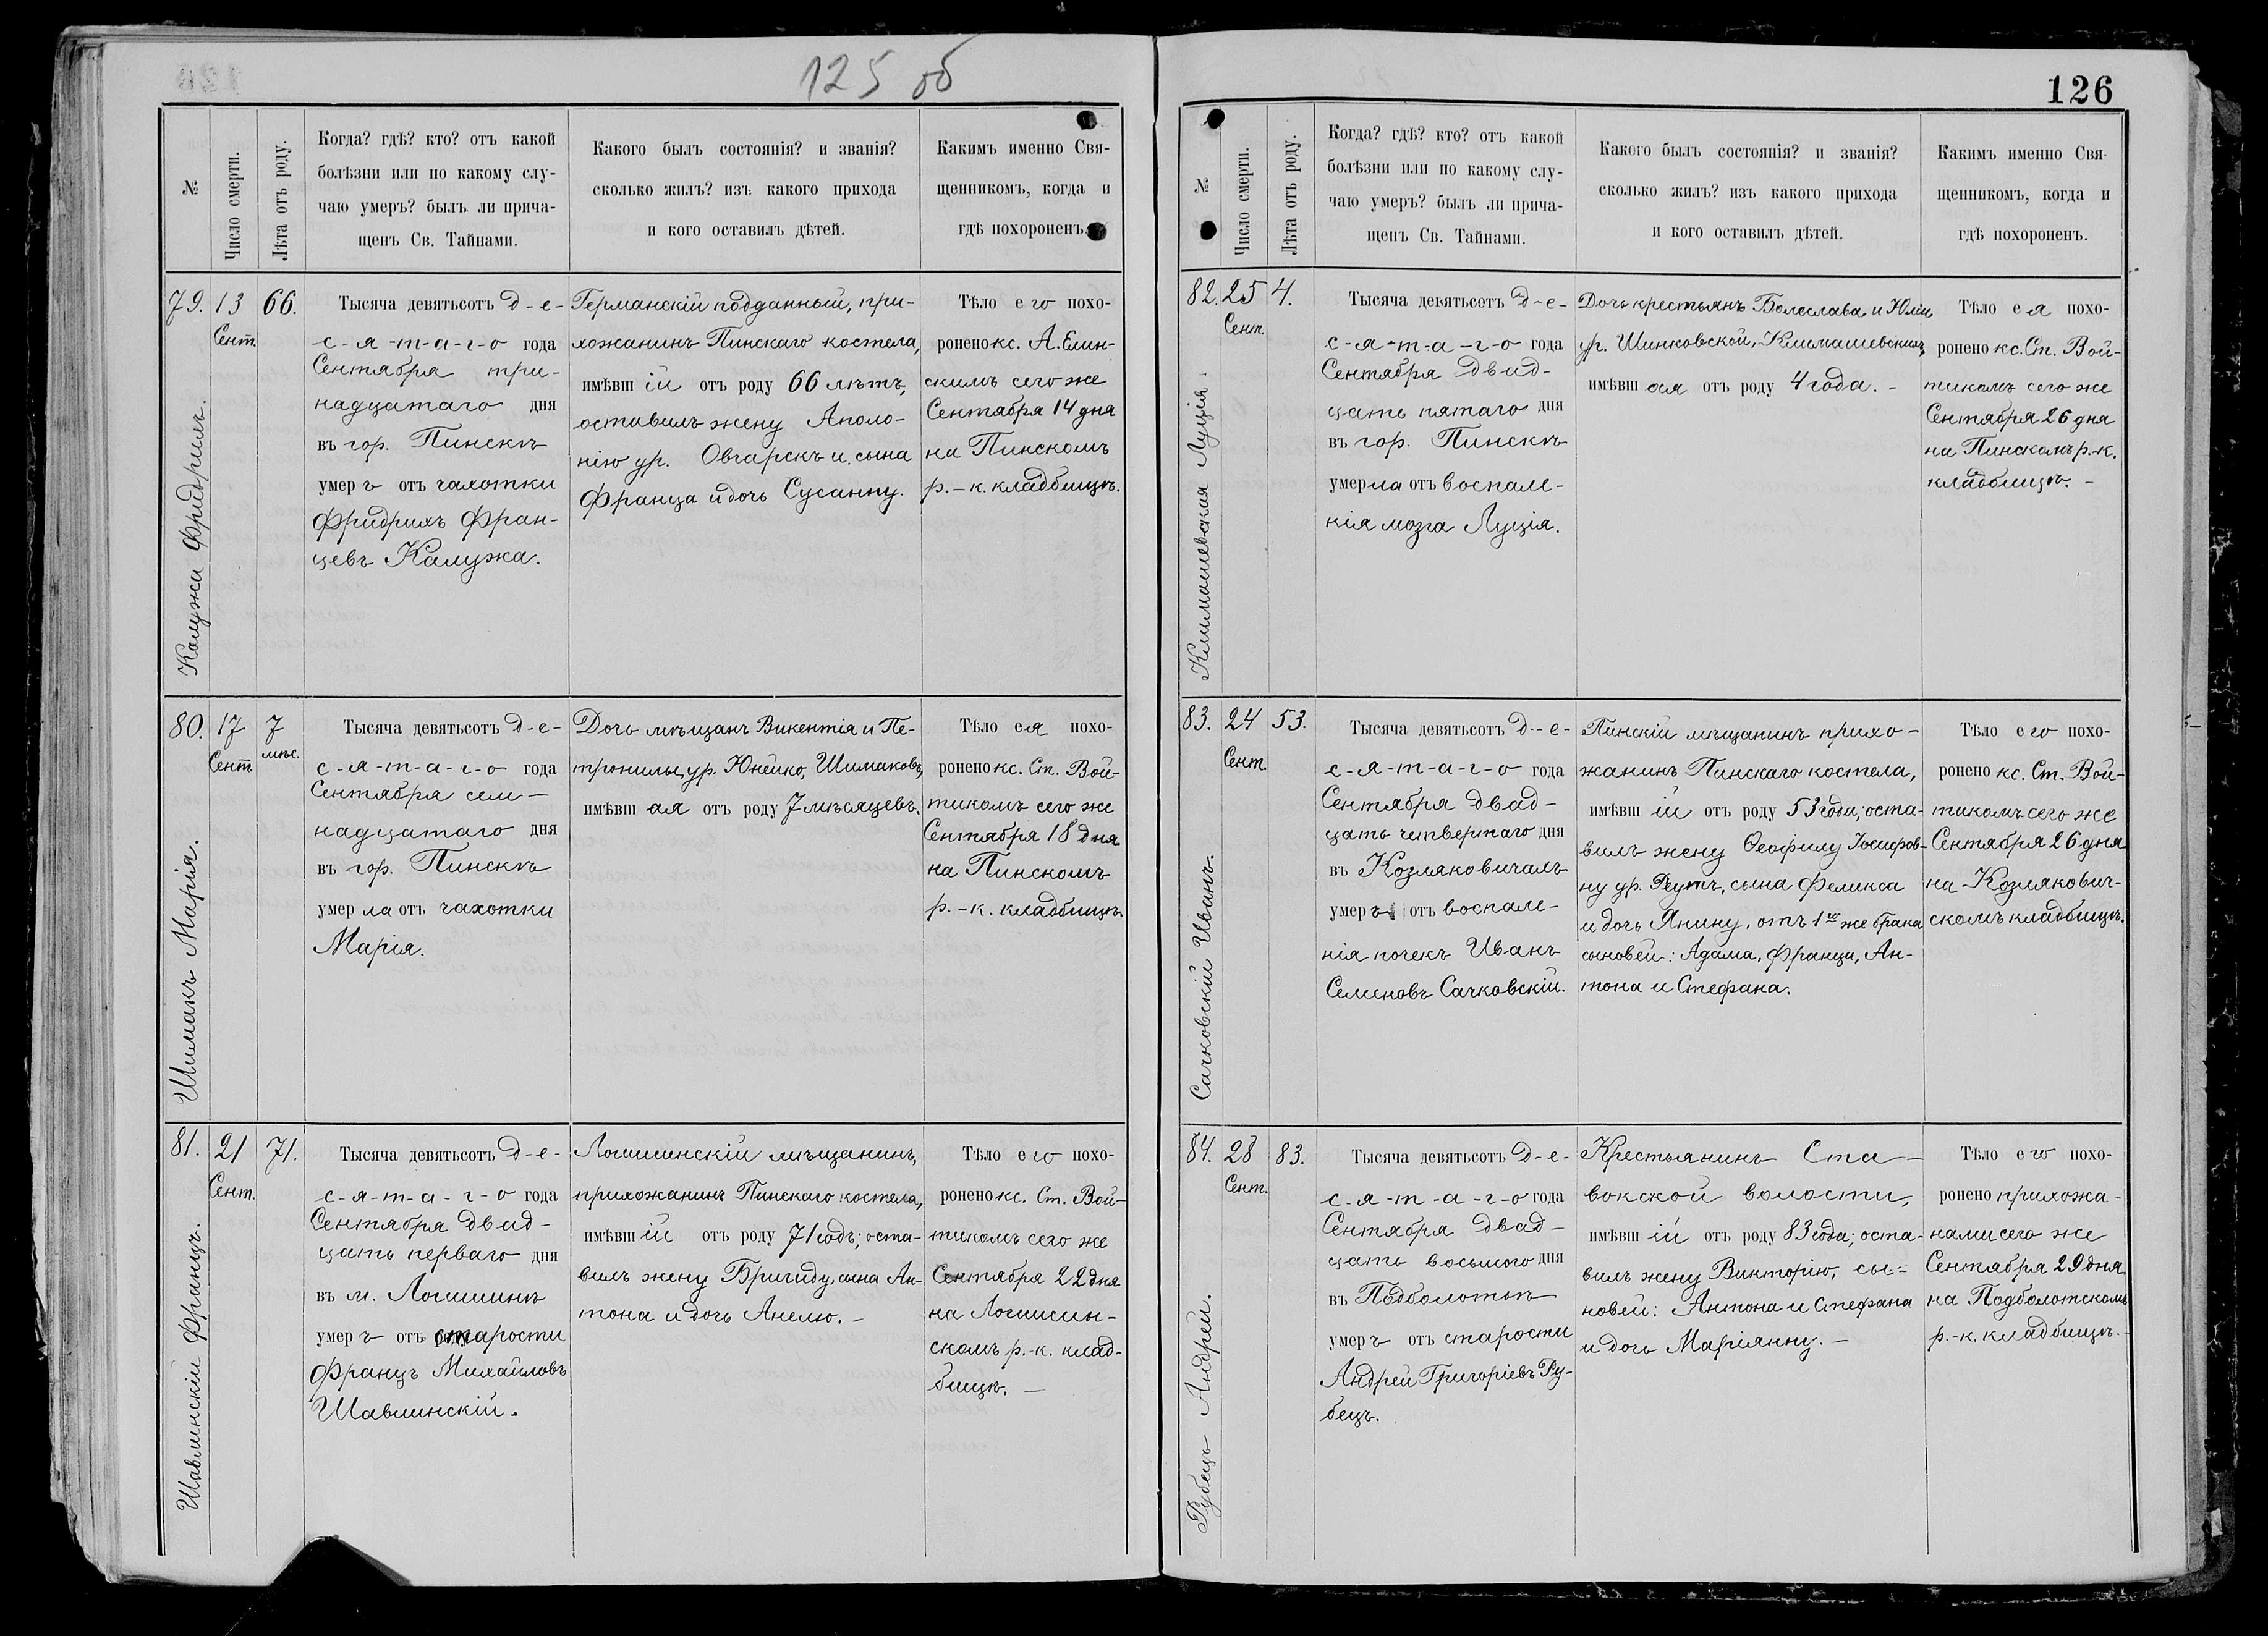 125 об
№
Число смерти.
Лѣта отъ роду.
Когда? гдѣ? кто? отъ какой
болѣзни или по какому слу-
чаю умеръ? былъ ли прича-
щенъ Св. Тайнами.
Какого былъ состоянія? и званія?
сколько жилъ? изъ какого прихода
и кого оставилъ дѣтей.
Какимъ именно Свя-
щенникомъ, когда и
гдѣ похороненъ.
79.
Калужа Фридрихъ.
13
Сент.
66.
Тысяча девятьсотъ д-е-
с-я-т-а-г-о года
Сентября три-
надцатаго дня
въ гор. Пинскѣ
умеръ отъ чахотки
Фридрихъ Фран-
цевъ Калужа.
Германскій подданный, при-
хожанинъ Пинскаго костела,
имѣвшій отъ роду 66 лѣтъ,
оставилъ жену Аполо-
нію ур. Овчарскъ и сына
Франца и дочь Сусанну.
Тѣло его похо-
ронено кс. А. Елин-
скимъ сего же
Сентября 14 дня
на Пинскомъ
р.-к. кладбищѣ.
80.
Шимакъ Марія.
17
Сент.
7
мѣс.
Тысяча девятьсотъ д-е-
с-я-т-а-г-о года
Сентября сем-
надцатаго дня
въ гор. Пинскѣ
умерла отъ чахотки
Марія.
Дочь мѣщанъ Викентія и Пе-
тронилы, ур. Юнейко, Шимаковъ,
имѣвшая отъ роду 7 мѣсяцевъ.
Тѣло ея похо-
ронено кс. Ст. Вой-
тикомъ сего же
Сентября 18 дня
на Пинскомъ
р.-к. кладбищѣ.
81.
Шавлинскій Францъ.
21
Сент.
71.
Тысяча девятьсотъ д-е-
с-я-т-а-г-о года
Сентября двад-
цать перваго дня
въ м. Логишинѣ
умеръ отъ старости
Францъ Михайловъ
Шавлинскій.
Логишинскій мѣщанинъ,
прихожанинъ Пинскаго костела,
имѣвшій отъ роду 71 годъ; оста-
вилъ жену Бригиду, сына Ан-
тона и дочь Анелю. -
Тѣло его похо-
ронено кс. Ст. Вой-
тикомъ сего же
Сентября 22 дня
на Логишин-
скомъ р.-к. клад-
бищѣ. -
126
№
Число смерти.
Лѣта отъ роду.
Когда? гдѣ? кто? отъ какой
болѣзни или по какому слу-
чаю умеръ? былъ ли прича-
щенъ Св. Тайнами.
Какого былъ состоянія? и званія?
сколько жилъ? изъ какого прихода
и кого оставилъ дѣтей.
Какимъ именно Свя-
щенникомъ, когда и
гдѣ похороненъ.
82.
Климашевская Луція.
25
Сент.
4.
Тысяча девятьсотъ д-е-
с-я-т-а-г-о года
Сентября двад-
цать пятаго дня
въ гор. Пинскѣ
умерла отъ воспале-
нія мозга Луція.
Дочь крестьянъ Болеслава и Юліи
ур. Шинковской, Климашевскихъ,
имѣвшая отъ роду 4 года. -
Тѣло ея похо-
ронено кс. Ст. Вой-
тикомъ сего же
Сентября 26 дня
на Пинскомъ р.-к.
кладбищѣ. -
83.
Сачковскій Иванъ.
24
Сент.
53.
Тысяча девятьсотъ д-е-
с-я-т-а-г-о года
Сентября двад-
цать четвертаго дня
въ Козляковичахъ
умеръ отъ воспале-
нія почекъ Иванъ
Семеновъ Сачковскій.
Пинскій мѣщанинъ прихо-
жанинъ Пинскаго костела,
имѣвшій отъ роду 53 года; оста-
вилъ жену Ѳеофилу Іосифов-
ну ур. Реутъ, сына Феликса
и дочь Янину, отъ 1го же брака
сыновей: Адама, Франца, Ан-
тона и Стефана.
Тѣло его похо-
ронено кс. Ст. Вой-
тикомъ сего же
Сентября 26 дня
на Козлякович-
скомъ кладбищѣ.
84.
Рубецъ Андрей.
28
Сент.
83.
Тысяча девятьсотъ д-е-
с-я-т-а-г-о года
Сентября двад-
цать восьмого дня
въ Подболотьѣ
умеръ отъ старости
Андрей Григоріевъ Ру-
бецъ.
Крестьянинъ Ста-
вокской волости,
имѣвшій отъ роду 83 года; оста-
вилъ жену Викторію, сы-
новей: Антона и Стефана
и дочь Маріянну. -
Тѣло его похо-
ронено прихожа-
нами сего же
Сентября 29 дня
на Подболотскомъ
р.-к. кладбищѣ. -